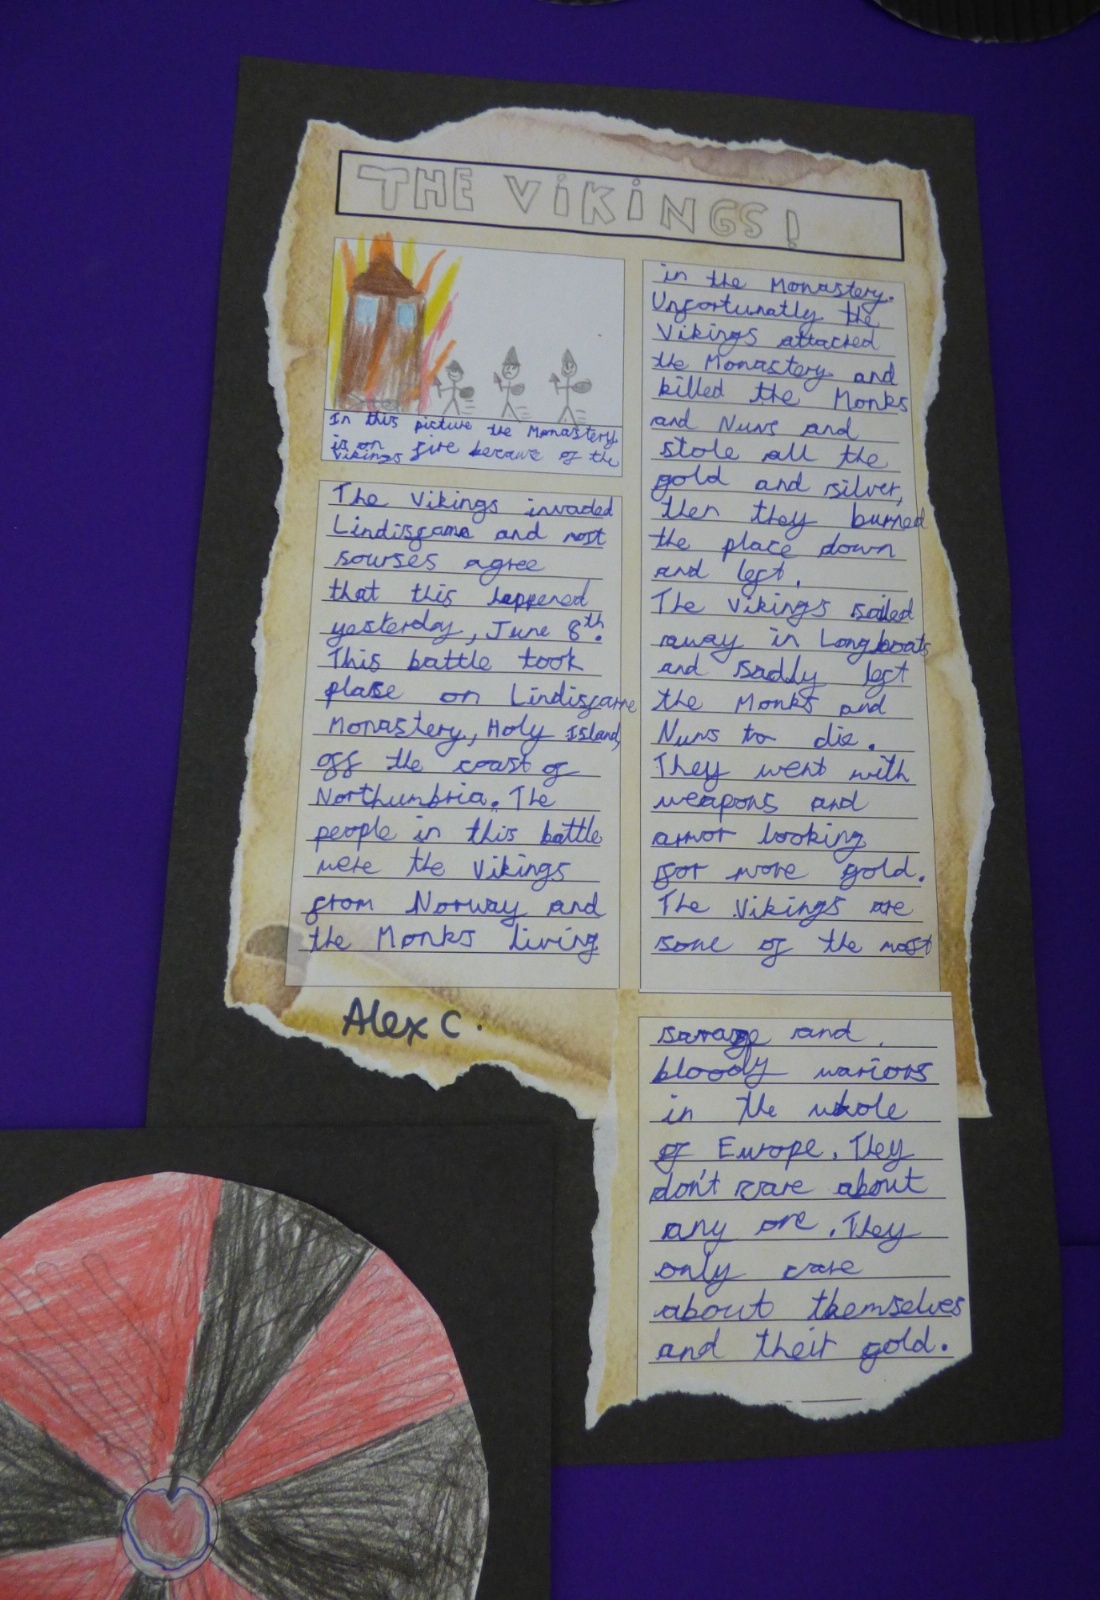 THE ViKiNGS!
In this picture the Monastery
is on fire because of the
Vikings
The Vikings invaded
Lindisfarne and most
sourses agree
that this happened
yesterday, June 8th.
This battle took
place on Lindisfarne
Monastery, Holy Island,
off the coast of
Northumbria. The
people in this battle
were the Vikings
from Norway and
the Monks living
in the Monastery.
Unfortunatly the
Vikings attacked
the Monastery and
killed the Monks
and Nuns and
stole all the
gold and silver,
then they burned
the place down
and left.
The Vikings sailed
away in Longboats
and sadly left
the Monks and
Nuns to die.
They went with
weapons and
armor looking
for more gold.
The Vikings are
some of the most
savage and
bloody wariors
in the whole
of Europe. They
don't care about
any one. They
only care
about themselves
and their gold.
Alex C.